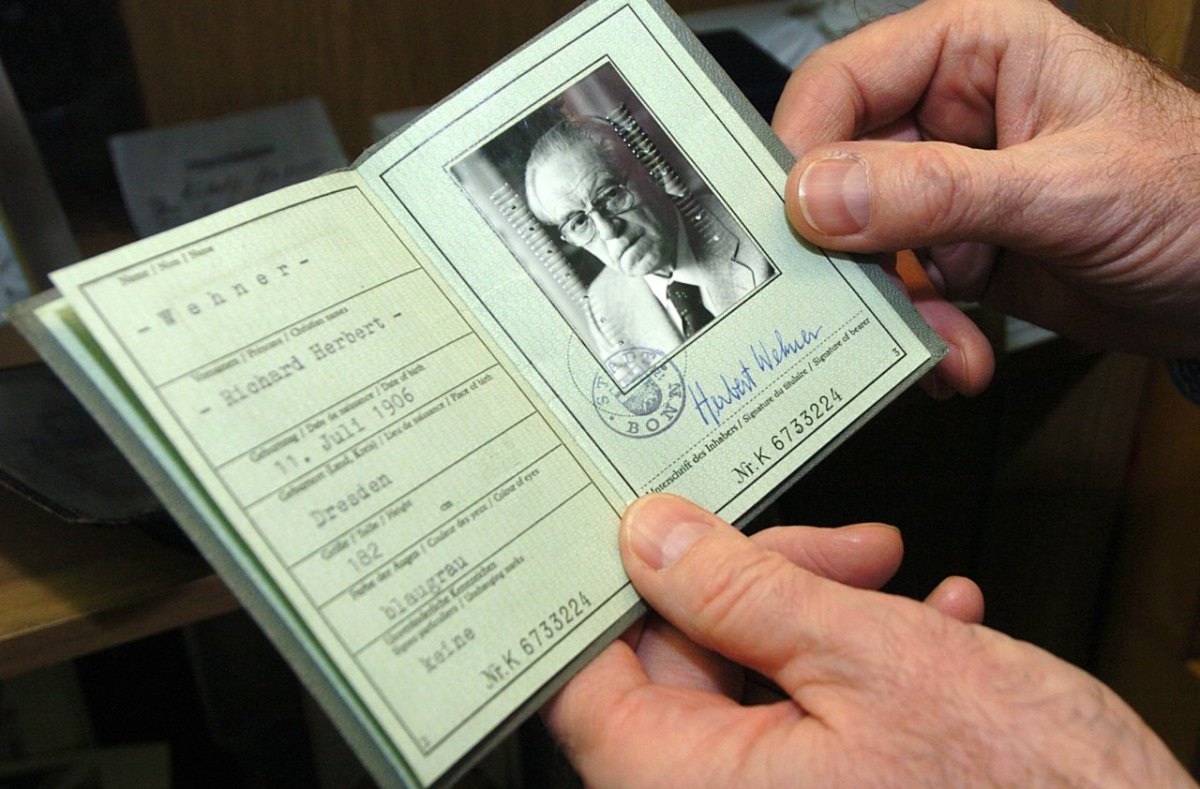 Name / Nom / Name
- W e h n e r -
Vornamen / Prénoms / Christian names
- Richard Herbert -
Geburtstag / Date de naissance / Date of birth
11. Juli 1906
Geburtsort (Land, Kreis) / Lieu de naissance / Place of birth
Dresden
Größe / Taille / Height
182 cm
Farbe der Augen / Couleur des yeux / Colour of eyes
blaugrau
Unveränderliche Kennzeichen
Signes particuliers / Distinguishing marks
keine
Nr. K 6733224
2
STADT BONN
Herbert Wehner
Unterschrift des Inhabers / Signature du titulaire / Signature of bearer
Nr. K 6733224
3